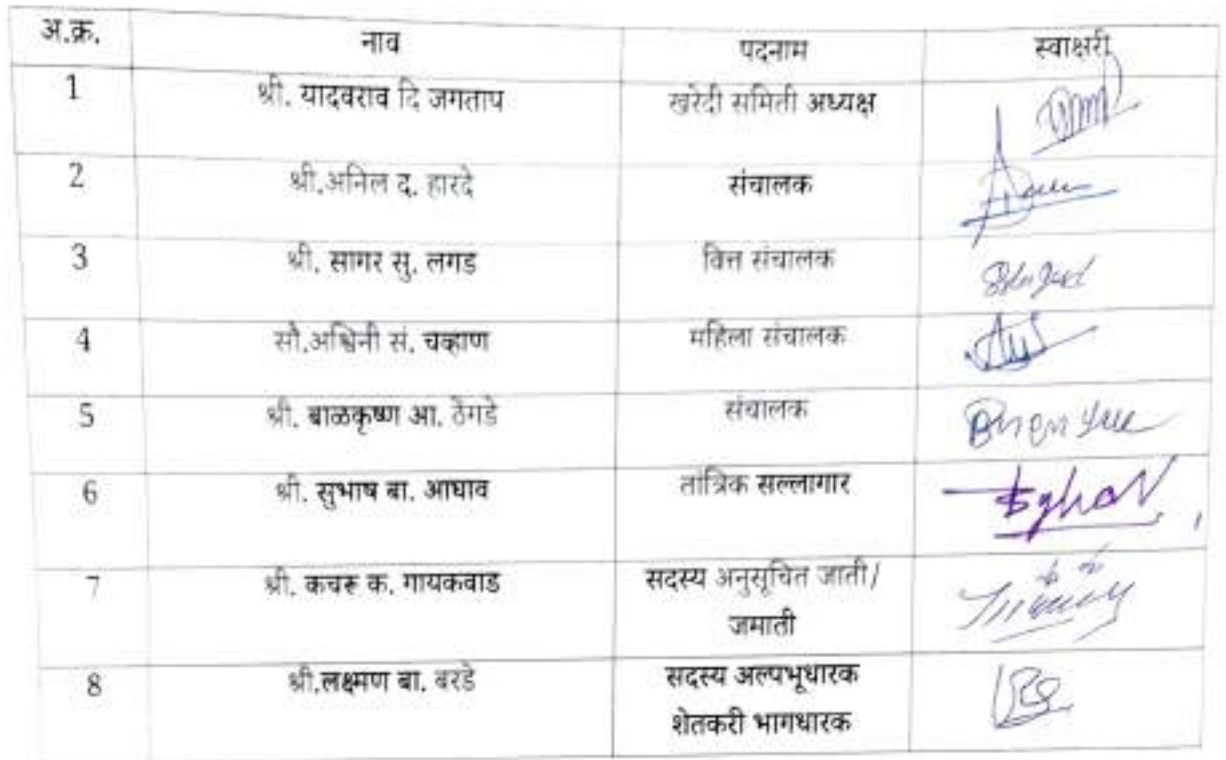 अ.क्र. नाव पदनाम स्वाक्षरी
1 श्री. यादवराव दि जगताप खरेदी समिती अध्यक्ष
2 श्री.अनिल द. हारदे संचालक
3 श्री. सागर सु. लगड वित्त संचालक
4 सौ.अश्विनी सं. चव्हाण महिला संचालक
5 श्री. बाळकृष्ण आ. ठेगडे संचालक
6 श्री. सुभाष बा. आघाव तांत्रिक सल्लागार
7 श्री. कचरू क. गायकवाड सदस्य अनुसूचित जाती/
जमाती
8 श्री.लक्ष्मण बा. बरडे सदस्य अल्पभूधारक
शेतकरी भागधारक